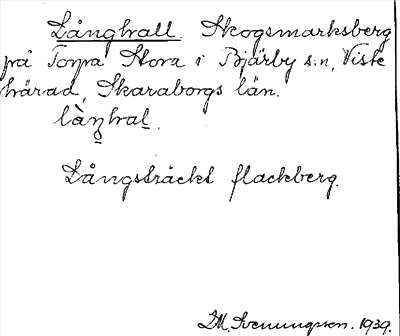 Långhall. Skogsmarksberg
på Torpa Stora i Bjärby s:n, Viste
härad, Skaraborgs län.
Långsträckt flackberg.
Svenungson. 1939.